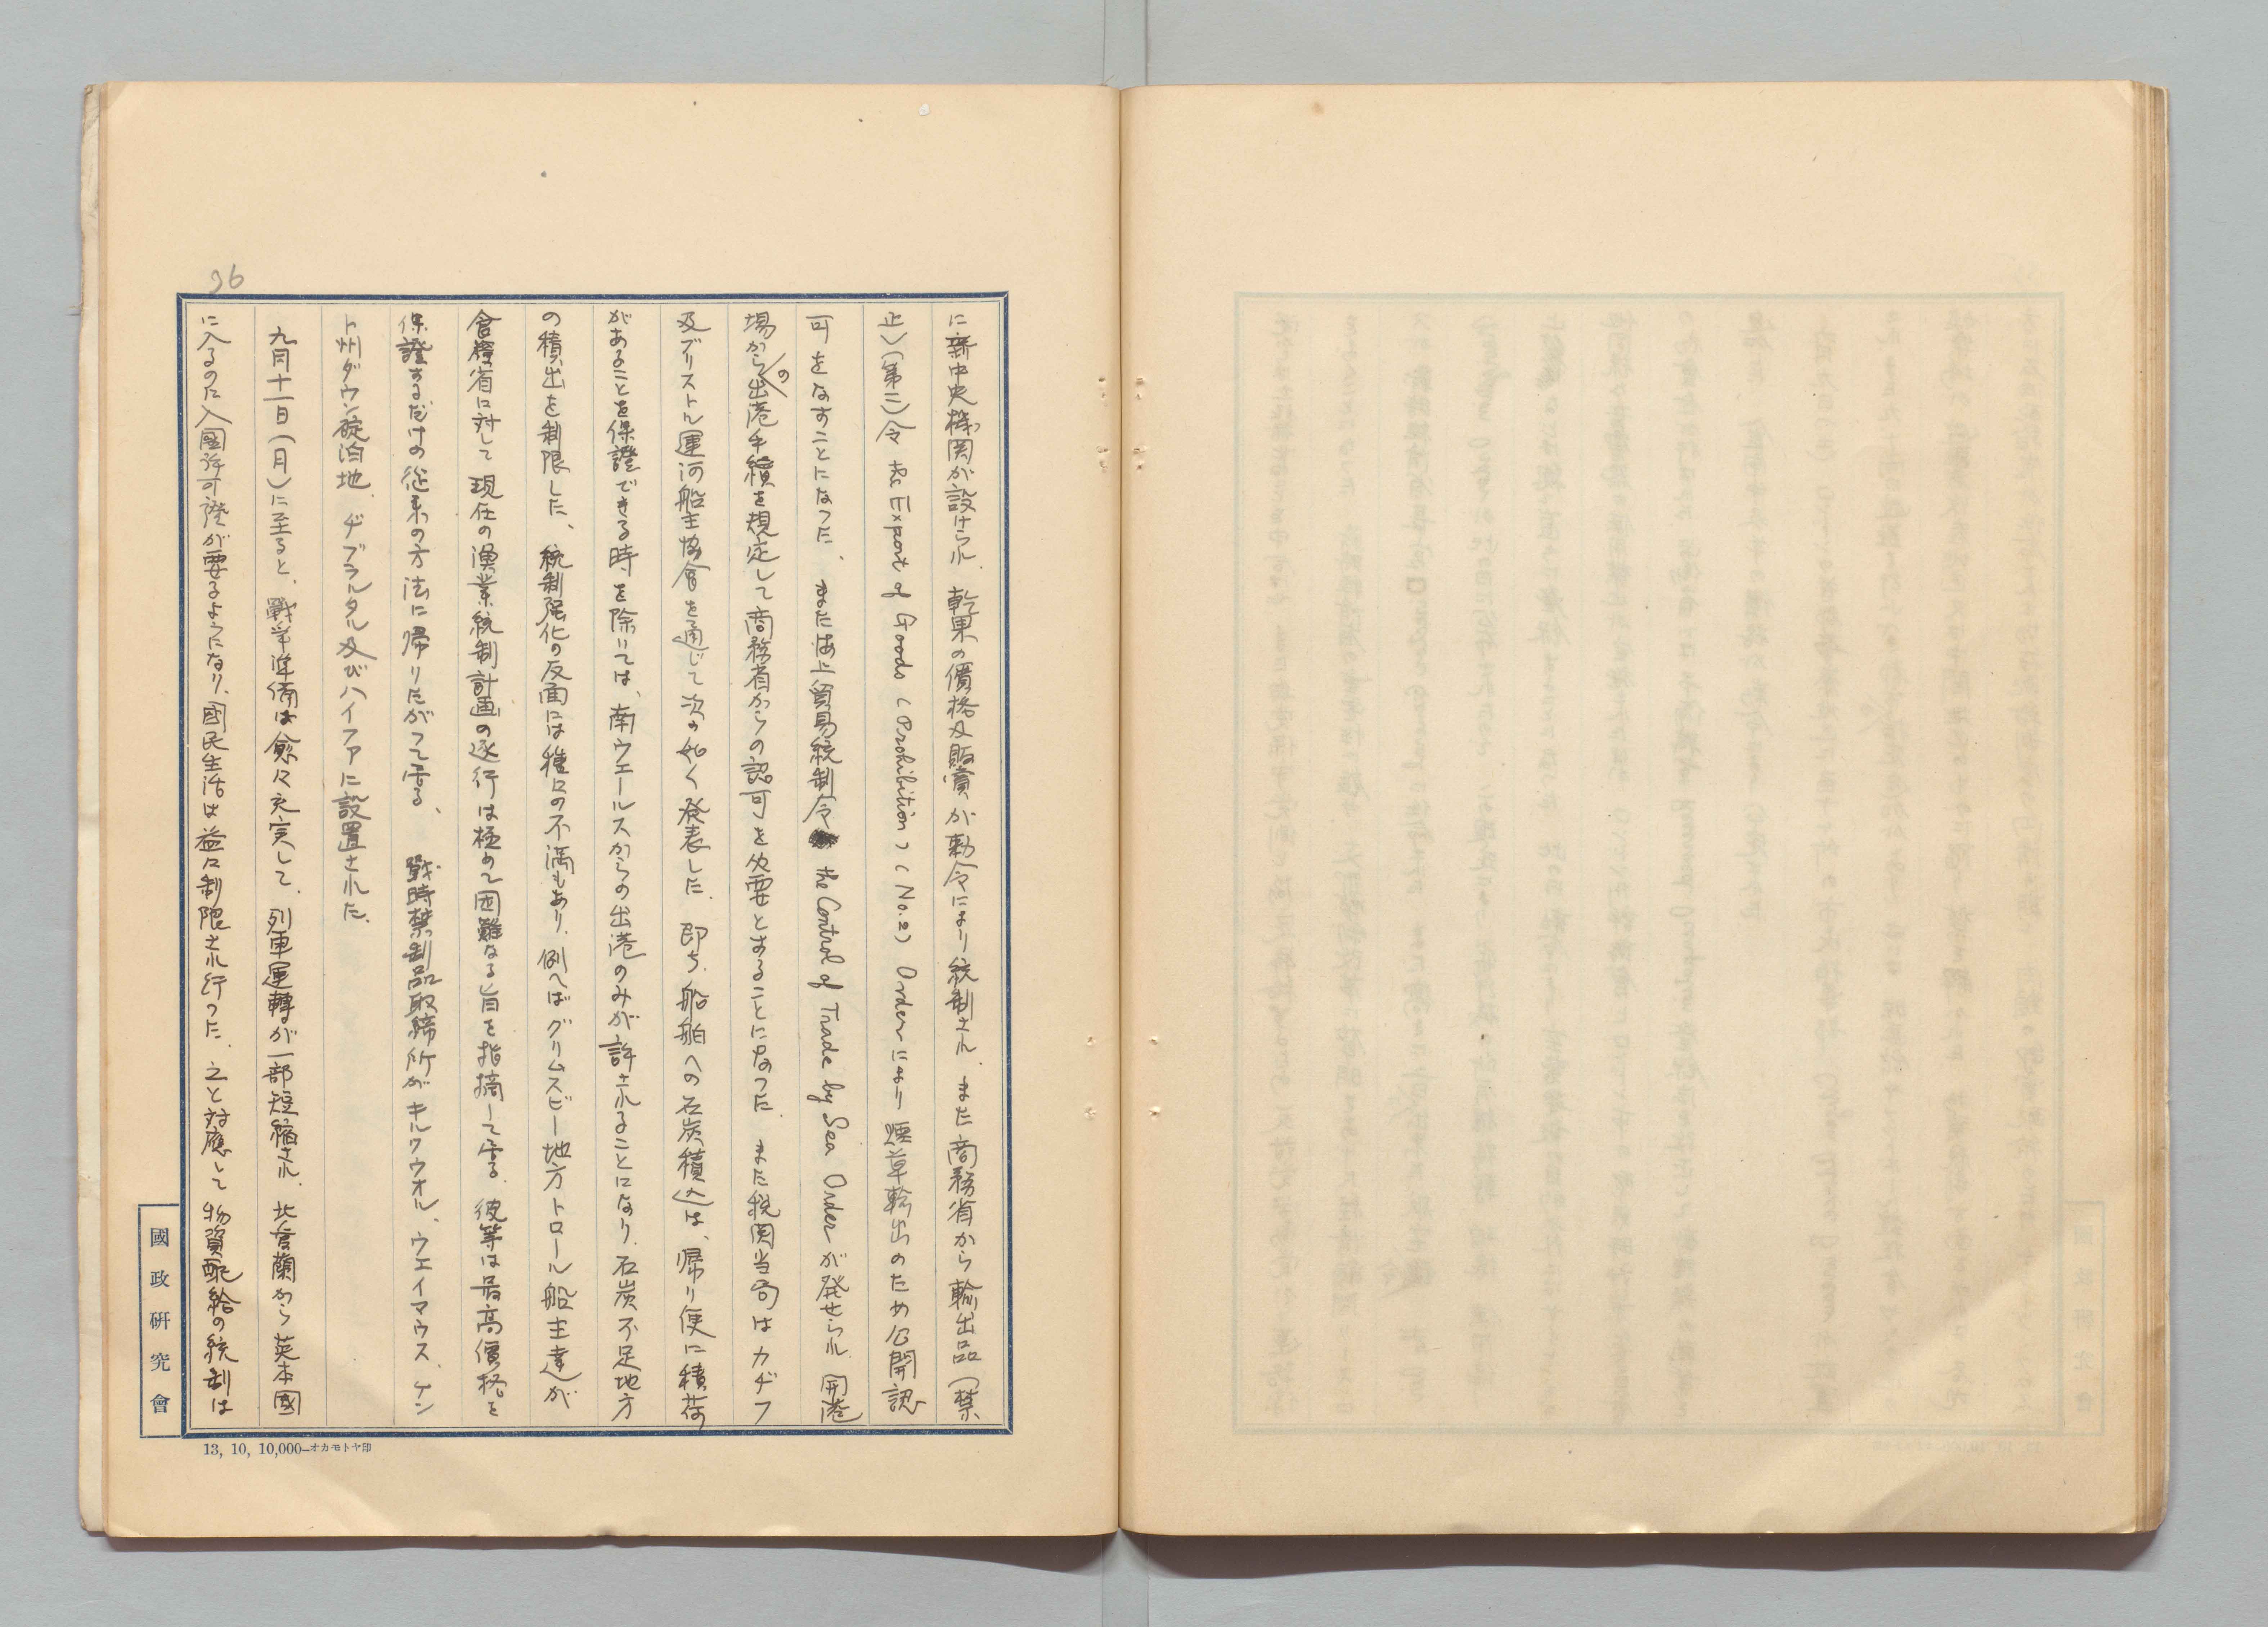 36
に新中央機関が設けられ、乾果の價格及販賣が勅令により統制され、また商務省から輸出品(禁
止)(第二)令 the Export of Goods (Prohibition) (No.2) Order により煙草輸出のため公開認
可をなすことになつた、また海上貿易統制令 the Control of Trade by Sea Order が発せられ、開港
場からの出港手續を規定して商務省からの認可を必要とすることになつた、また税関当局はカヂフ
及ブリストル運河船主協會を通じて次の如く発表した、即ち、船舶への石炭積込は、帰り便に積荷
があることを保證できる時を除いては、南ウエールスからの出港のみが許されることになり、石炭不足地方
の積出を制限した、統制強化の反面には種々の不満もあり、例へばグリムスビー地方トロール船主達が
食糧省に対して現在の漁業統制計画の遂行は極めて困難なる旨を指摘して居る、彼等は最高價格を
保證するだけの從来の方法に帰りたがつて居る、戰時禁制品取締所がキルクウオル、ウエイマウス、ケン
ト州ダウン碇泊地、ヂブラルタル及びハイファに設置された、
九月十一日(月)に至ると、戰爭準備は愈々充実して、列車運轉が一部短縮され、北愛蘭から英本國
に入るのに入國許可證が要るようになり、國民生活は益々制限され行つた、之と対應して物資配給の統制は
國政研究會
13, 10, 10,000—オカモトヤ印